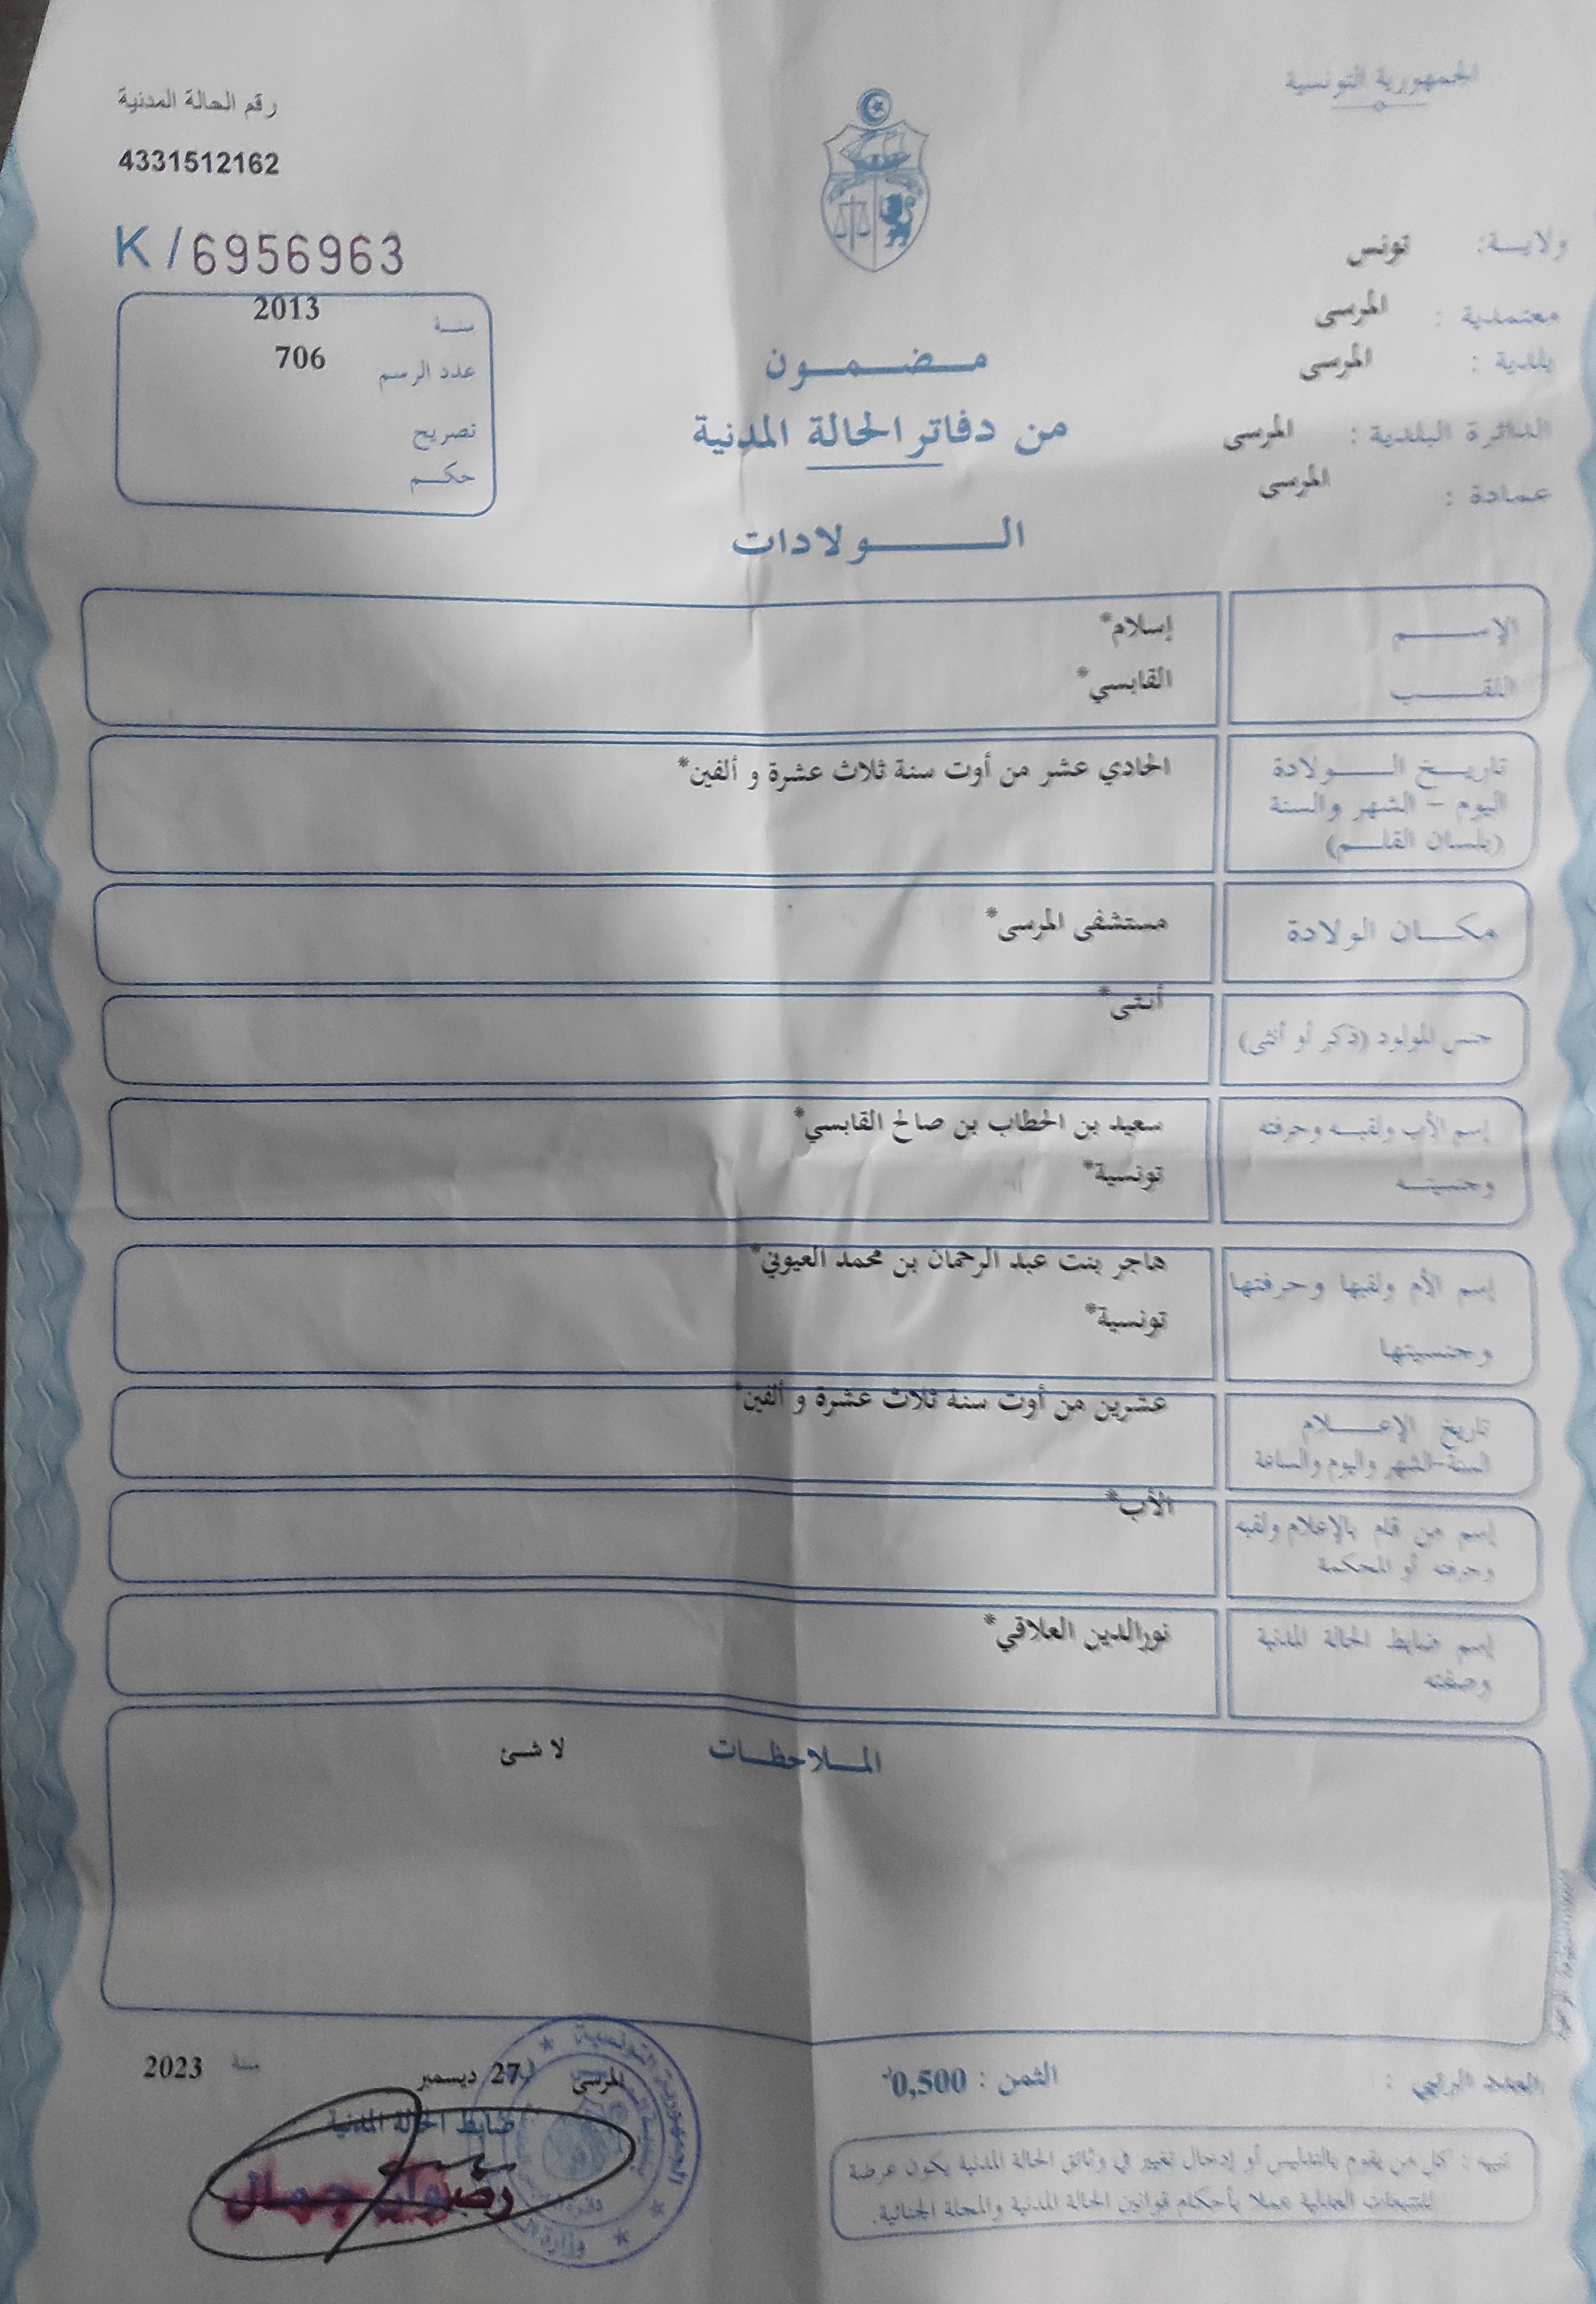 الجمهورية التونسية
رقم الحالة المدنية
4331512162
K / 6956963
ولايـة: تونس
معتمدية : المرسى
بلدية : المرسى
الدائرة البلدية : المرسى
عمادة : المرسى
سنـة 2013
عدد الرسم 706
تصريح
حكـم
مـضـمـون
من دفاتر الحالة المدنية
الـولادات
الإسـم إسلام*
اللقـب القابسي*
تاريـخ الـولادة الحادي عشر من أوت سنة ثلاث عشرة و ألفين*
اليوم - الشهر والسنة
(بلسان القلـم)
مكـان الولادة مستشفى المرسى*
جنس المولود (ذكر أو أنثى) أنثى*
إسم الأب ولقبـه وحرفته سعيد بن الحطاب بن صالح القابسي*
وجنسيتـه تونسية*
إسم الأم ولقبها وحرفتها هاجر بنت عبد الرحمان بن محمد العيوني*
وجنسيتها تونسية*
تاريخ الإعـلام عشرين من أوت سنة ثلاث عشرة و ألفين*
السنة-الشهر واليوم والساعة
إسم من قام بالإعلام ولقبه الأب*
وحرفته أو المحكمة
إسم ضابط الحالة المدنية نورالدين العلاقي*
وصفته
المـلاحظـات لا شئ
العدد الرتبي :
الثمن : 0,500د
المرسى في 27 ديسمبر سنة 2023
ضابط الحالة المدنية
تنبيه : كل من يقوم بالتدليس أو إدخال تغيير في وثائق الحالة المدنية يكون عرضة
للتتبعات العدلية عملا بأحكام قوانين الحالة المدنية والمجلة الجنائية.